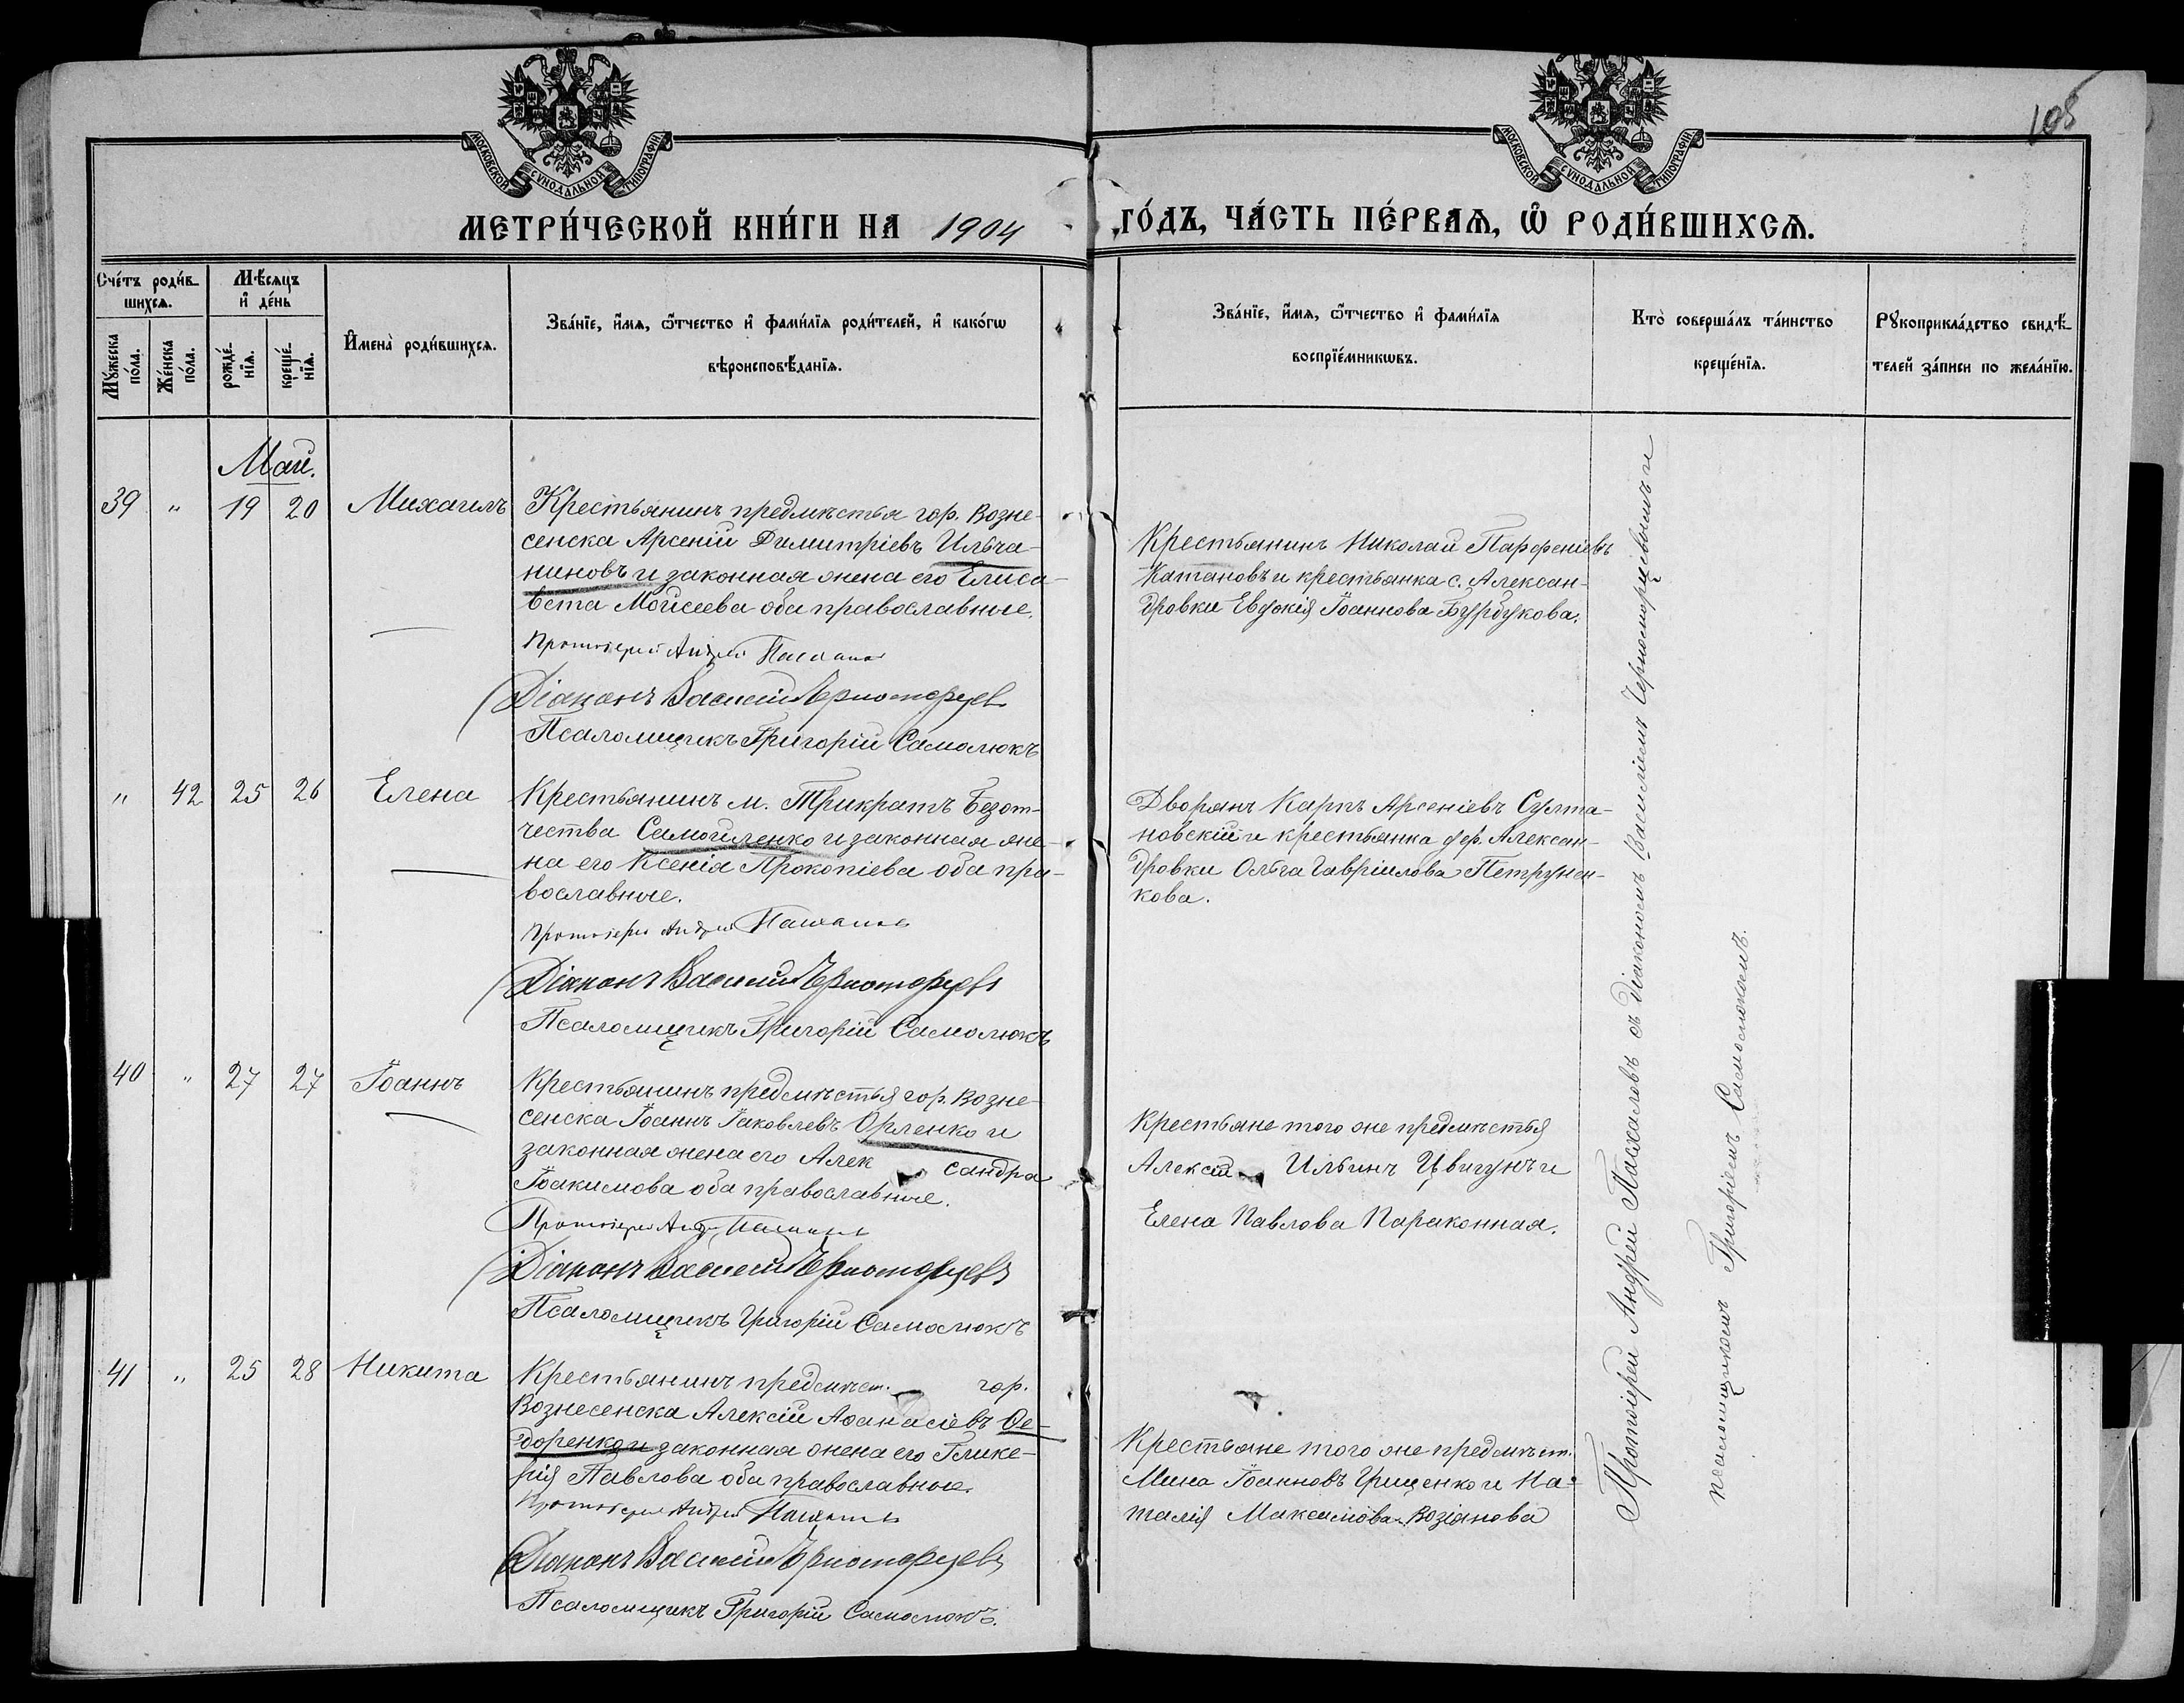 105
МОСКОВСКОЙ СѴНОДАЛЬНОЙ ТИПОГРАФІИ
МОСКОВСКОЙ СѴНОДАЛЬНОЙ ТИПОГРАФІИ
МЕТРИ́ЧЕСКОЙ КНИ́ГИ НА 1904 ГО́ДЪ, ЧА́СТЬ ПЕ́РВАѦ, Ѿ РОДИ́ВШИХСѦ.
Сче́тъ роди́в-
шихсѧ.
Мꙋжеска
по́ла.
Же́нска
по́ла.
Мѣ́сѧцъ
и҆ де́нь
рожде́-
нїѧ.
креще́-
нїѧ.
И҆мена̀ роди́вшихсѧ.
Зва́нїе, и҆́мѧ, ѻ҆́тчество и҆ фами́лїѧ роди́телей, и҆ како́гѡ
вѣроисповѣ́данїѧ.
Зва́нїе, и҆́мѧ, ѻ҆́тчество и҆ фами́лїѧ
воспрїе́мникѡвъ.
Кто̀ соверша́лъ та́инство
креще́нїѧ.
Рꙋкоприкла́дство свидѣ́-
телей за́писи по жела́нїю.
Май.
39 " 19 20 Михаилъ
Крестьянинъ предмѣстья гор. Возне-
сенска Арсеній Димитріевъ Ильча-
ниновъ и законная жена его Елиса-
вета Моисеева оба православные.
Протоіерей Андрей Пасхаловъ
Діаконъ Василій Черноморцевъ
Псаломщикъ Григорій Самолюкъ
Крестьянинъ Николай Парфеніевъ
Катановъ и крестьянка с. Алексан-
дровки Евдокія Іоаннова Бурдукова.
" 42 25 26 Елена
Крестьянинъ м. Трикратъ Безот-
чества Самойленко и законная же-
на его Ксенія Прокопіева оба пра-
вославные.
Протоіерей Андрей Пасхаловъ
Діаконъ Василій Черноморцевъ
Псаломщикъ Григорій Самолюкъ
Дворянъ Карпъ Арсеніевъ Султа-
новскій и крестьянка дер. Алексан-
дровки Ольга Гавріилова Петрунен-
кова.
40 " 27 27 Іоаннъ
Крестьянинъ предмѣстья гор. Возне-
сенска Іоаннъ Іаковлевъ Орленко и
законная жена его Алек сандра
Іоакимова оба православные.
Протоіерей Андрей Пасхаловъ
Діаконъ Василій Черноморцевъ
Псаломщикъ Григорій Самолюкъ
Крестьяне того же предмѣстья
Алексій Ильинъ Цвигунъ и
Елена Павлова Параконная.
41 " 25 28 Никита
Крестьянинъ предмѣст. гор.
Вознесенска Алексій Аѳанасіевъ Ѳе-
доренко и законная жена его Глике-
рія Павлова оба православные.
Протоіерей Андрей Пасхаловъ
Діаконъ Василій Черноморцевъ
Псаломщикъ Григорій Самолюкъ.
Крестьяне того же предмѣст.
Мина Іоанновъ Грищенко и На-
талія Максимова Возіанова
Протоіерей Андрей Пасхаловъ съ діакономъ Василіемъ Черноморцевымъ и
псаломщикомъ Григоріемъ Самолюкомъ.